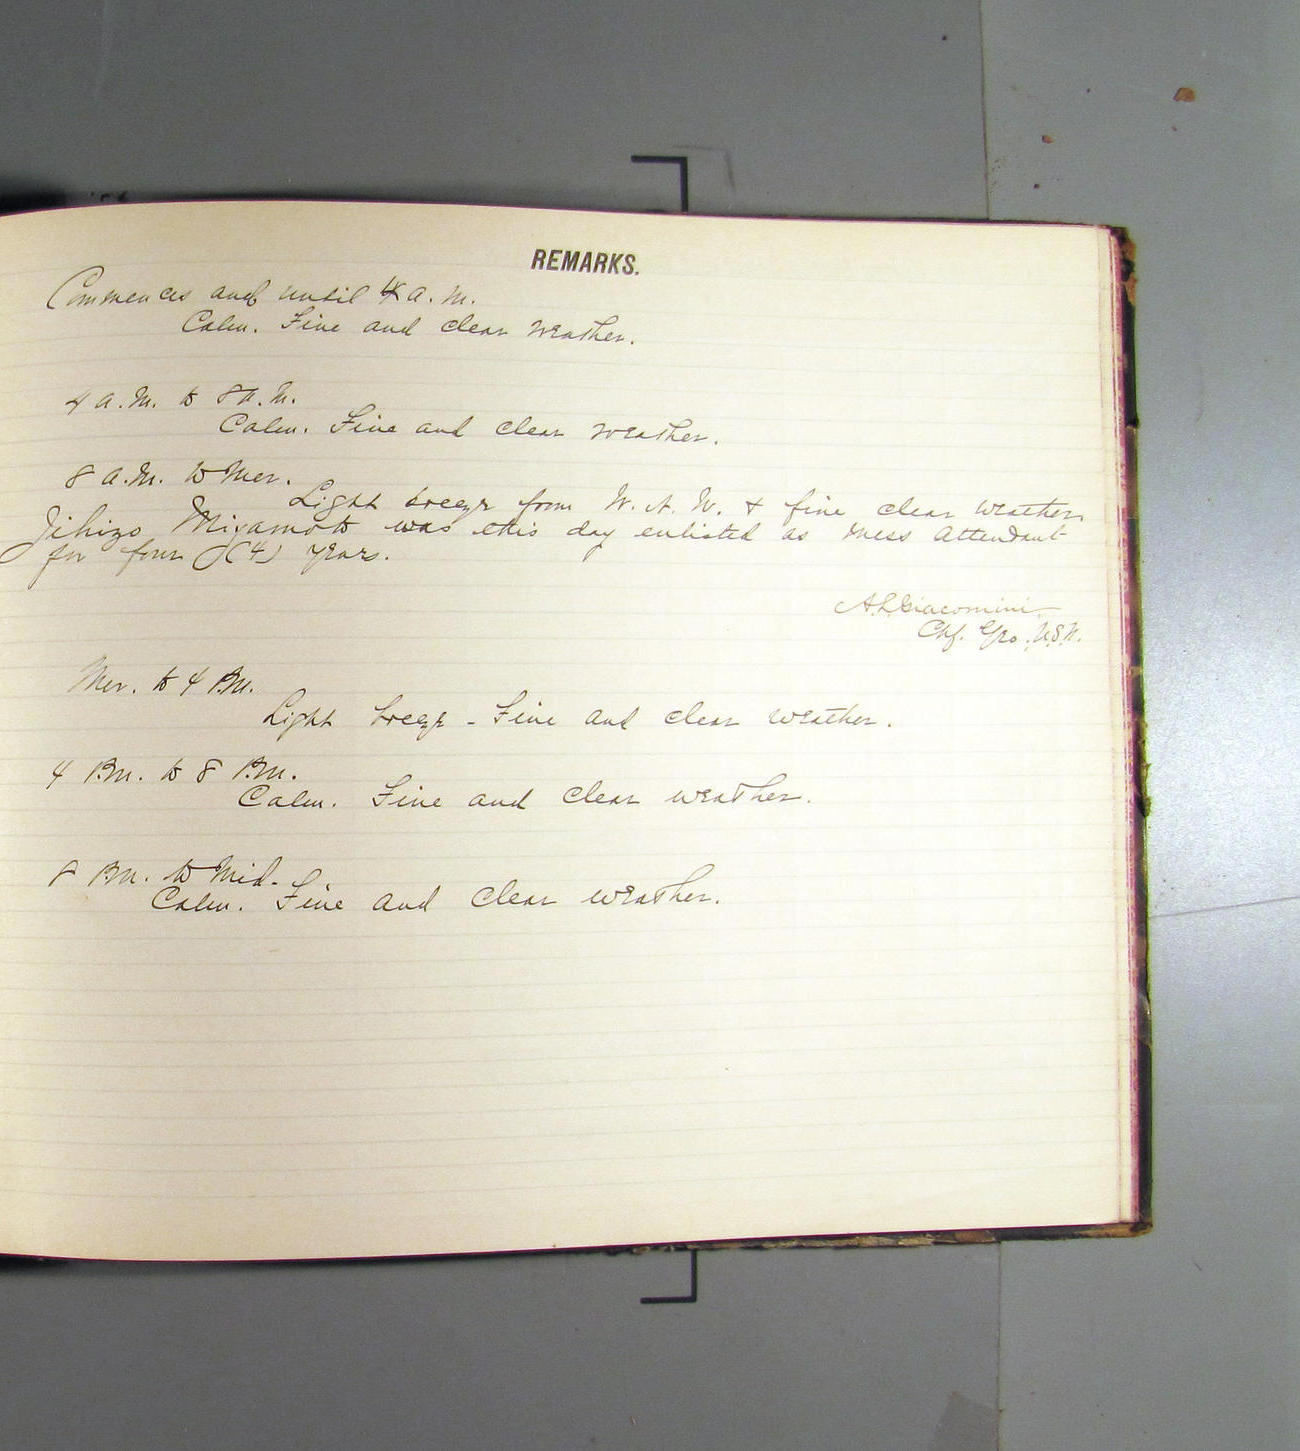 REMARKS.
Commences and until 4 a.m.
Calm. Fine and clear weather.
4 a.m. to 8 a.m.
Calm. Fine and clear weather.
8 a.m. to Mer.
Light breeze from W. N. W. & fine clear weather
Jihizo Miyamoto was this day enlisted as Mess Attendant
for four (4) years.
A.L. Giacomini
Chf. Yeo. U.S.N.
Mer. to 4 P.M.
Light breeze - Fine and clear weather.
4 P.M. to 8 P.M.
Calm. Fine and clear weather.
8 P.M. to Mid.
Calm. Fine and clear weather.